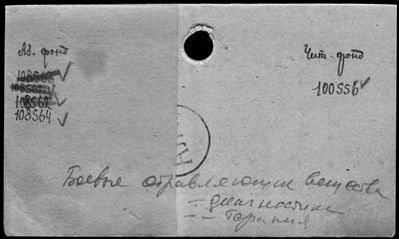 Аб. фонд
108563
108564
Чит. фонд
100556
Боевые отравляющие вещества
- диагностика
- - терапия